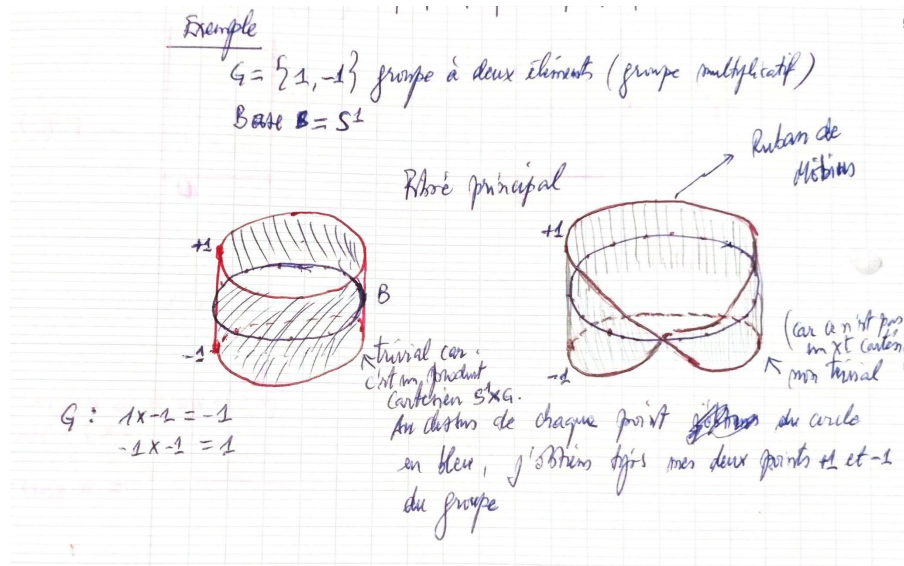 Exemple
G = {1, -1} groupe à deux éléments (groupe multiplicatif)
Base B = S¹
Ruban de
Möbius
Fibré principal
+1
+1
B
-1
-1
trivial car
c'est un produit
cartésien S¹xG.
(car ce n'est pas
un xt cartés.
non trivial
G : 1 x -1 = -1
-1 x -1 = 1
Au dessus de chaque point du cercle
en bleu, j'obtiens tjrs mes deux points +1 et -1
du groupe